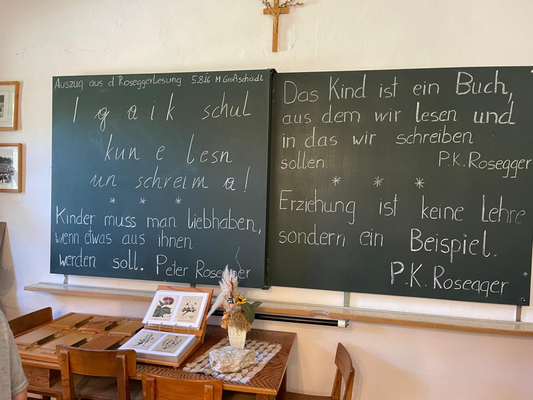 Auszug aus d Roseggerlesung 5.8.16 M Großschädl
I g a i k schul
kun e lesn
un schreim a!
* * *
Kinder muss man liebhaben,
wenn etwas aus ihnen
werden soll. Peter Rosegger
Das Kind ist ein Buch,
aus dem wir lesen und
in das wir schreiben
sollen. P.K. Rosegger
* * *
Erziehung ist keine Lehre
sondern ein Beispiel.
P.K. Rosegger